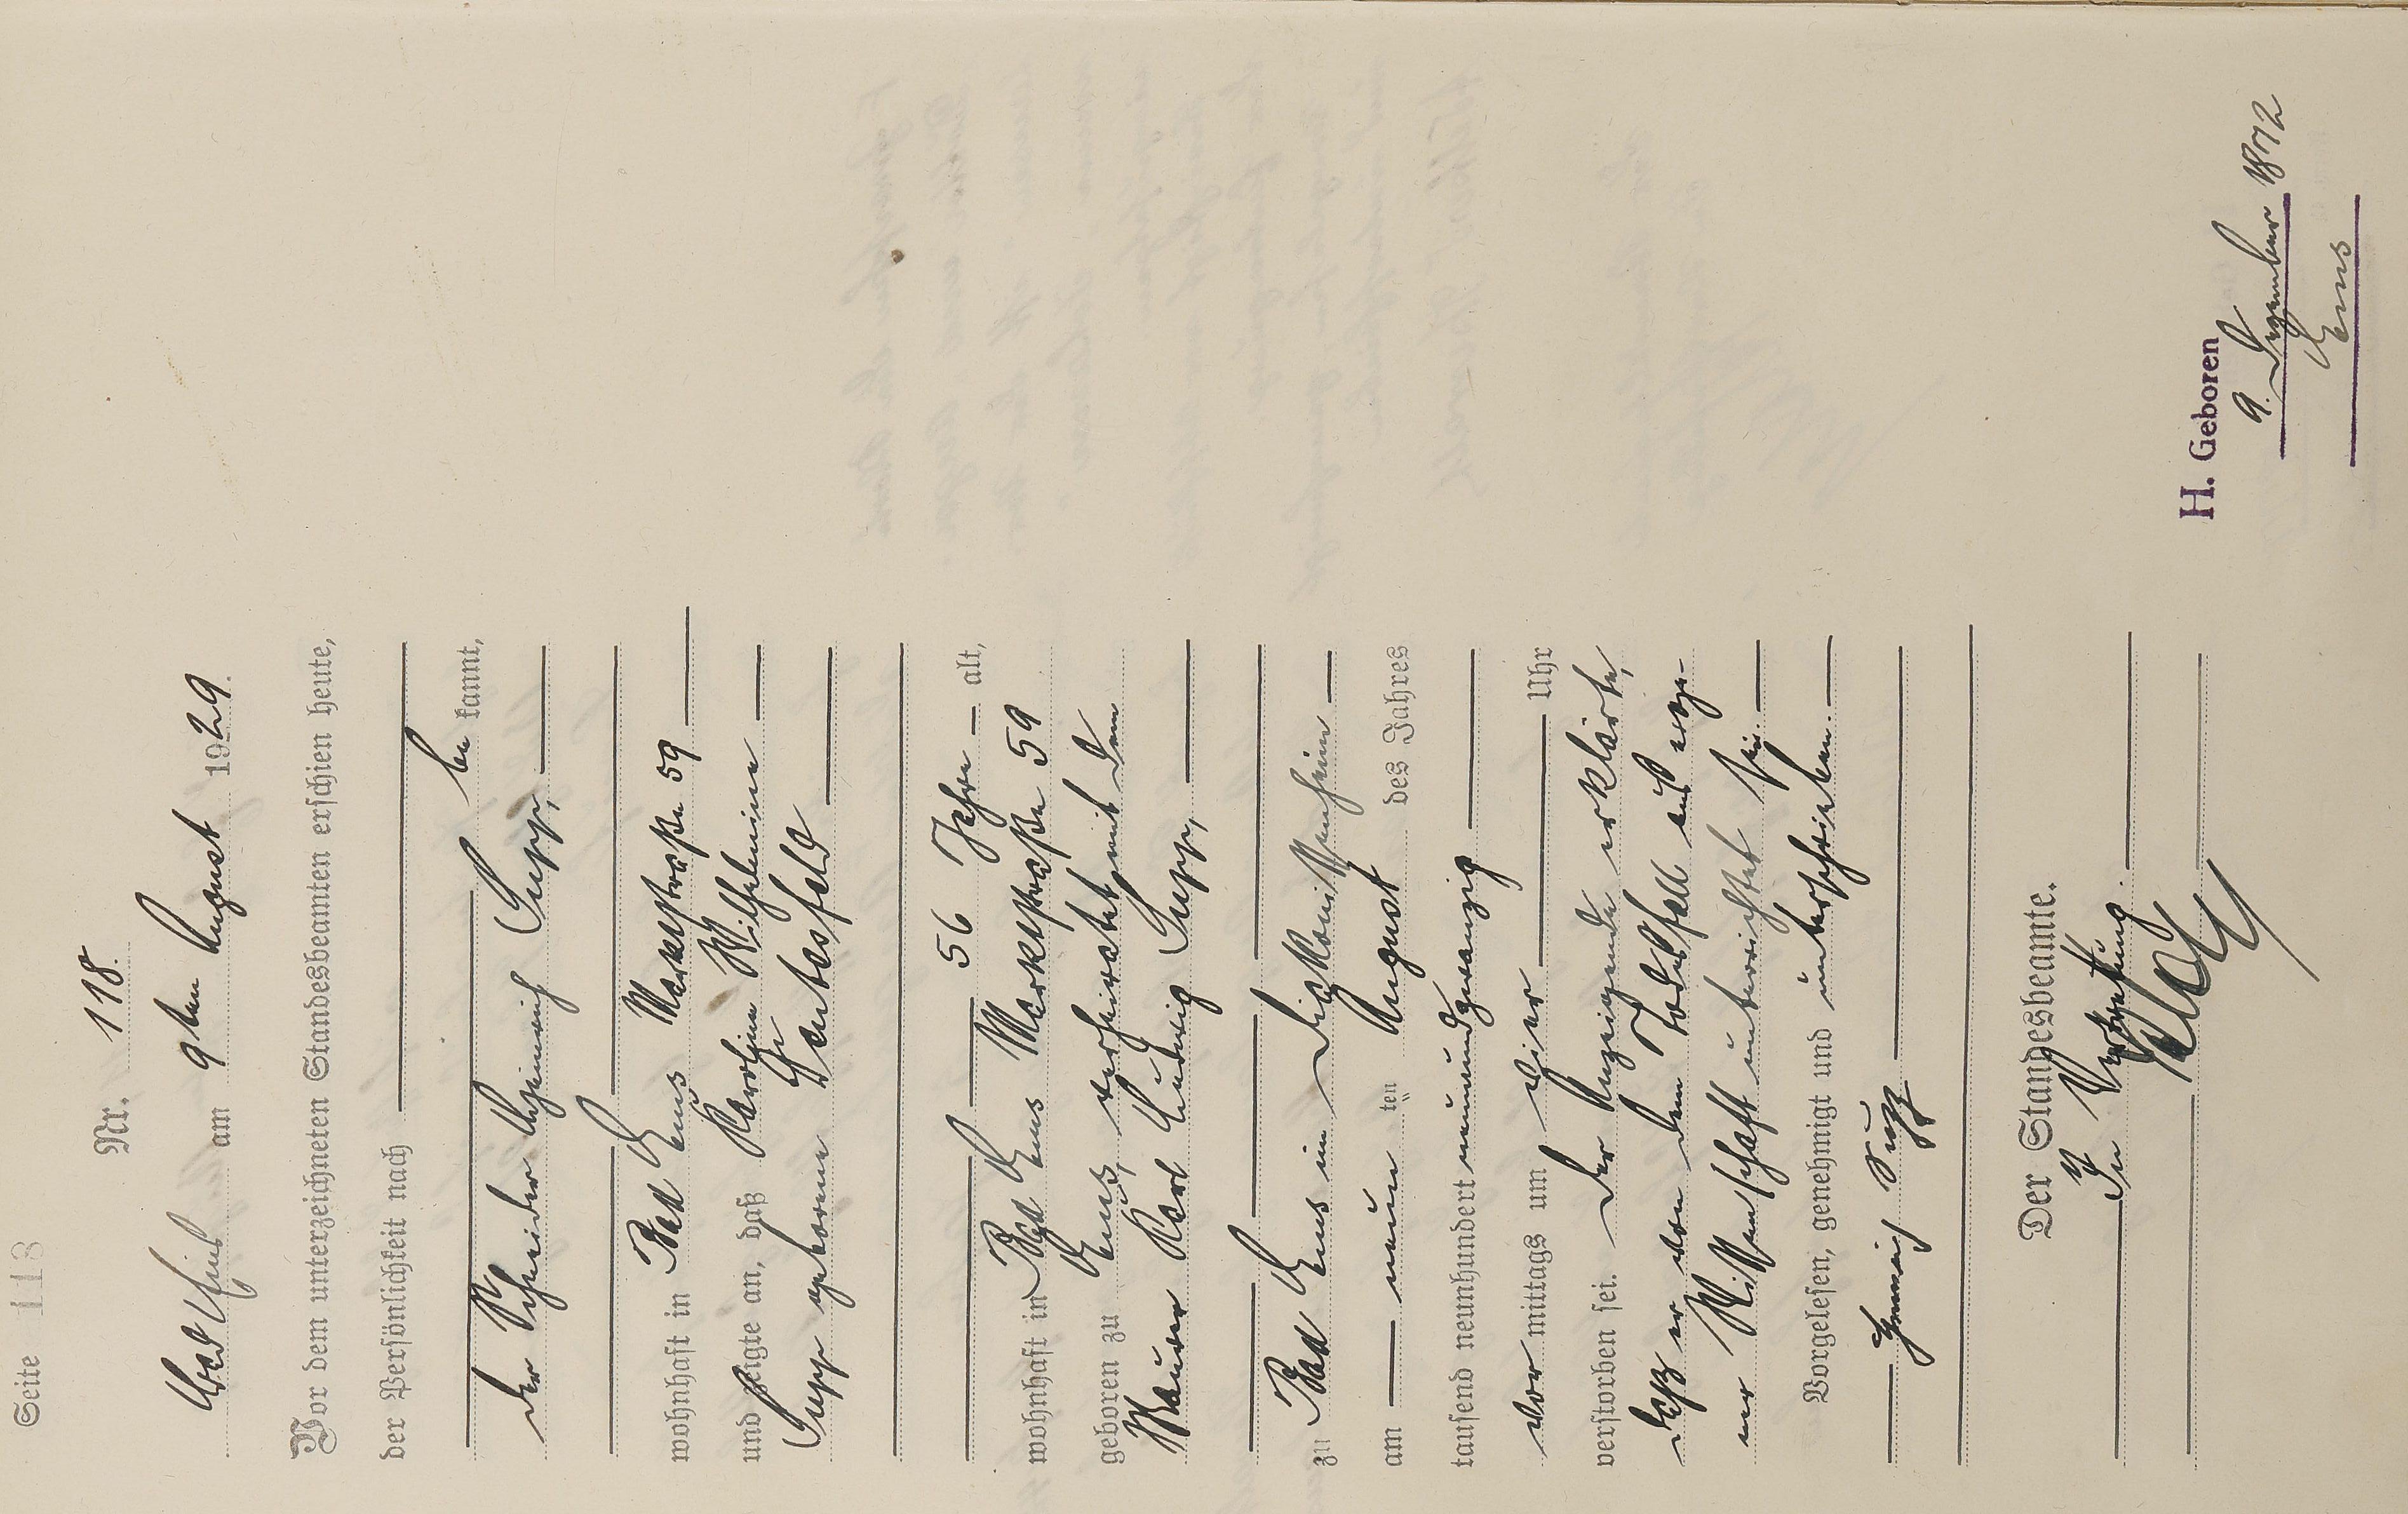 Seite 118
Nr. 118.
Bad Ems am 9ten August 1929.
Vor dem unterzeichneten Standesbeamten erschien heute,
der Persönlichkeit nach
be kannt,
der Schneider Heinrich Supp,
wohnhaft in Bad Ems Marktstraße 59
und zeigte an, daß Karoline Wilhelmine
Supp geborene
56 Jahre alt,
wohnhaft in Bad Ems Marktstraße 59
geboren zu Ems, verheiratet mit dem
Maurer Karl Ludwig Supp,
zu Bad Ems im Diakonissenheim
am neun ten August des Jahres
tausend neunhundert neunundzwanzig
vor mittags um vier Uhr
verstorben sei. Der Anzeigende erklärte,
daß er von dem Todesfall aus eige-
ner Wissenschaft unterrichtet sei.
Vorgelesen, genehmigt und unterschrieben.
Heinrich Supp
Der Standesbeamte.
In Vertretung.
H. Geboren
9. Dezember 1872
Ems